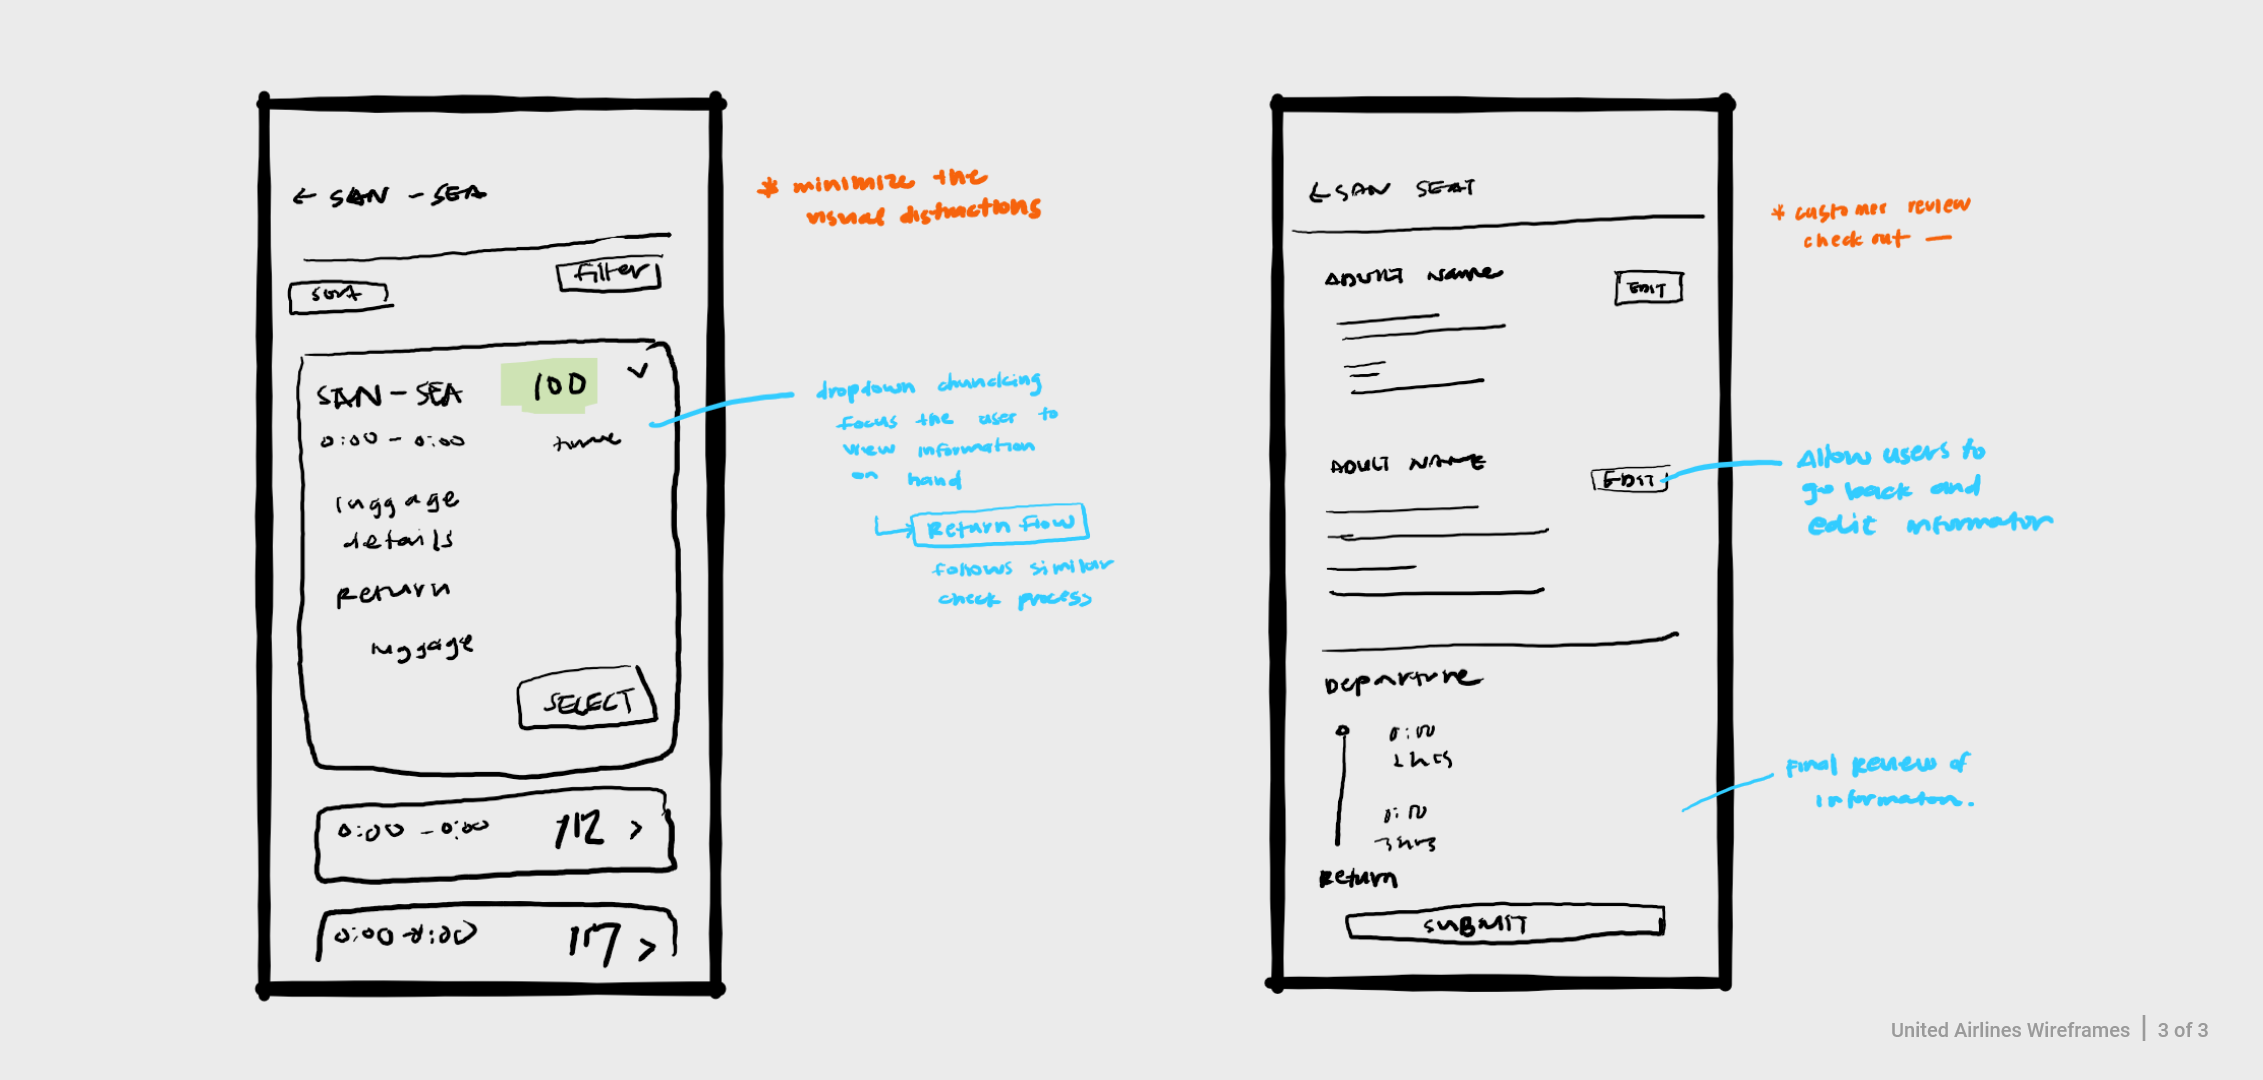 ← SAN - SEA
Sort
Filter
SAN - SEA 100
0:00 - 0:00 time
luggage
details
Return
luggage
SELECT
0:00 - 0:00 112 >
0:00 - 0:00 117 >
* minimize the
visual distractions
dropdown chuncking
Focus the user to
view information
on hand
Return flow
follows similar
check process
← SAN SEAT
ADULT Name
EDIT
ADULT NAME
EDIT
Departure
0:00
2 hrs
0:00
3 hrs
Return
SUBMIT
* customer review
check out —
Allow users to
go back and
edit information
Final Review of
information.
United Airlines Wireframes | 3 of 3